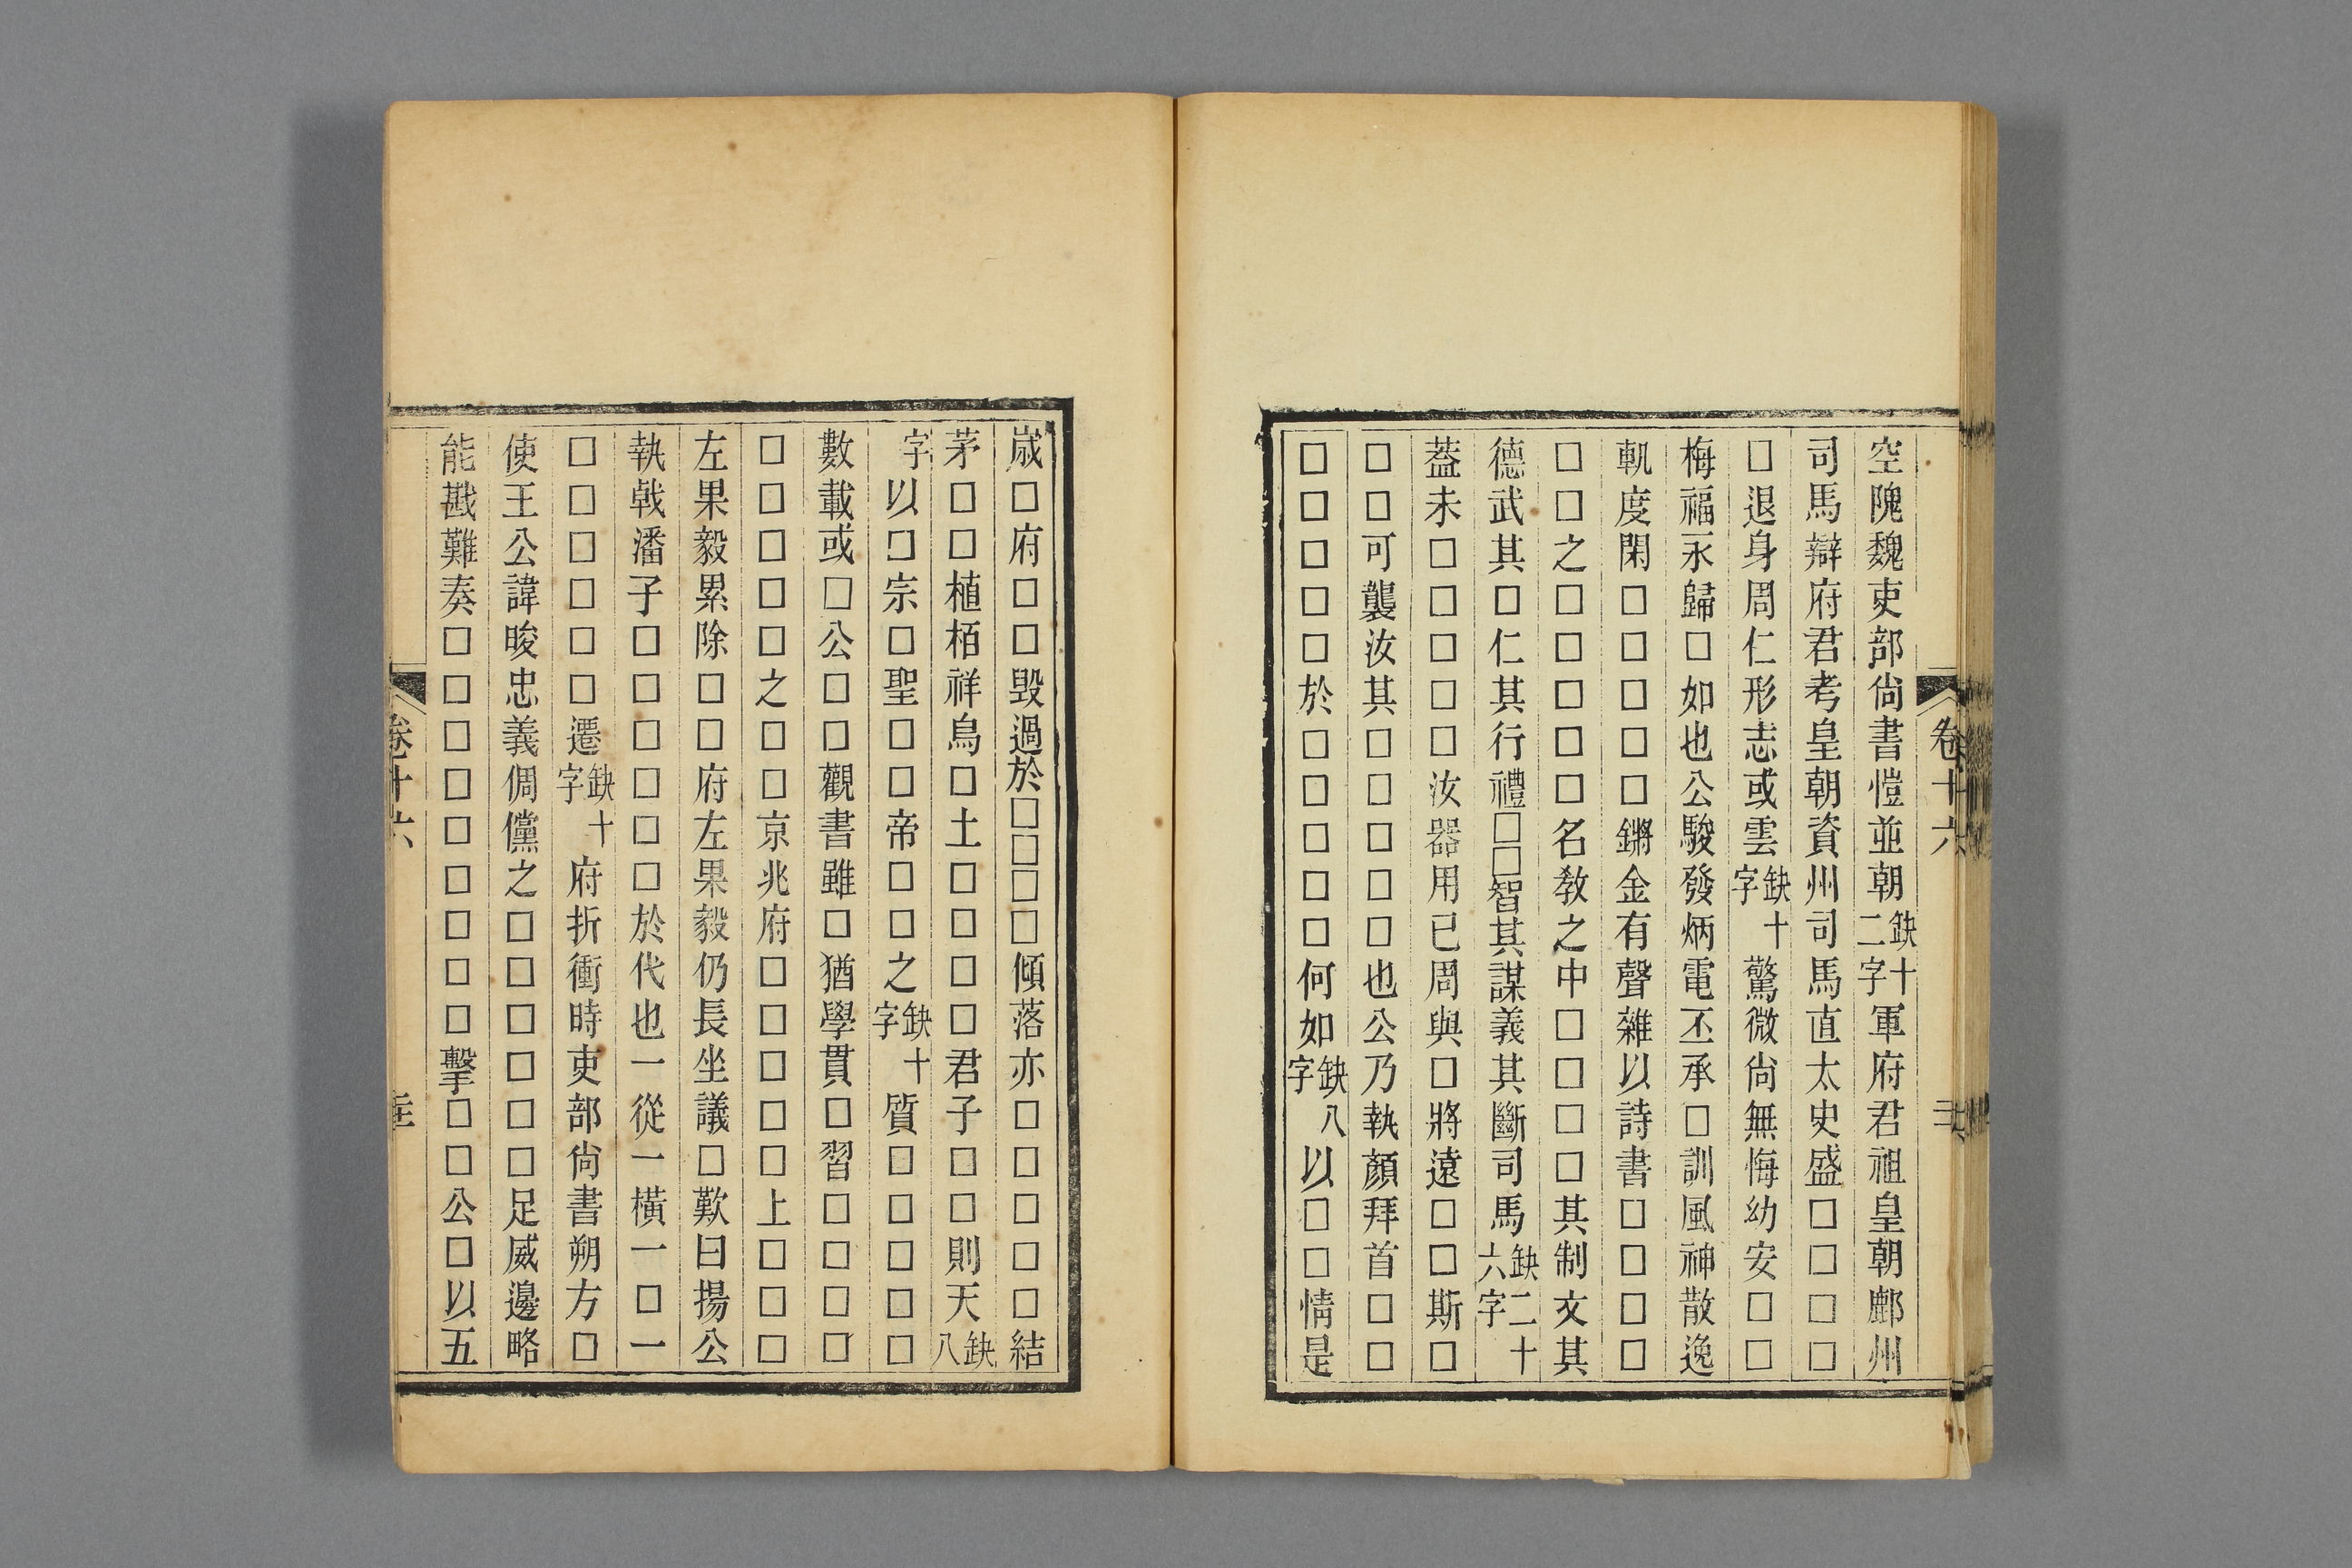 空隗魏吏部尙書愷並朝缺十二字軍府君祖皇朝鄜州
司馬辯府君考皇朝資州司馬直太史盛□□□□
□退身周仁形志或雲缺十字驚微尙無悔幼安□□
梅福永歸□如也公駿發炳電丕承□訓風神散逸
軌度閑□□□□□鏘金有聲雜以詩書□□□□
□□之□□□□□名敎之中□□□□其制文其
德武其□仁其行禮□□智其其謀義其斷司馬缺二十六字
葢未□□□□□汝器用已周與□將遠□□斯□
□□可襲汝其□□□□□也公乃執顏拜首□□
□□□□□於□□□□□何如缺八字以□□情是
卷十六
歲□府□□毀過於□□□□傾落亦□□□□□結
茅□□植栢祥鳥□土□□□□君子□□則天缺八
字以□宗□聖□□帝□□之缺十字質□□□□□
數載或□公□□觀書雖□猶學貫□習□□□□
□□□□□之□□京兆府□□□□□上□□□
左果毅累除□□府左果毅仍長坐議□歎曰揚公
執戟潘子□□□□□□於代也一從一橫一□一
□□□□□□遷缺十字府折衝時吏部尙書朔方□
使王公諱晙忠義倜儻之□□□□□□足威邊略
能戡難奏□□□□□□□□□擊□□公□以五
卷十六